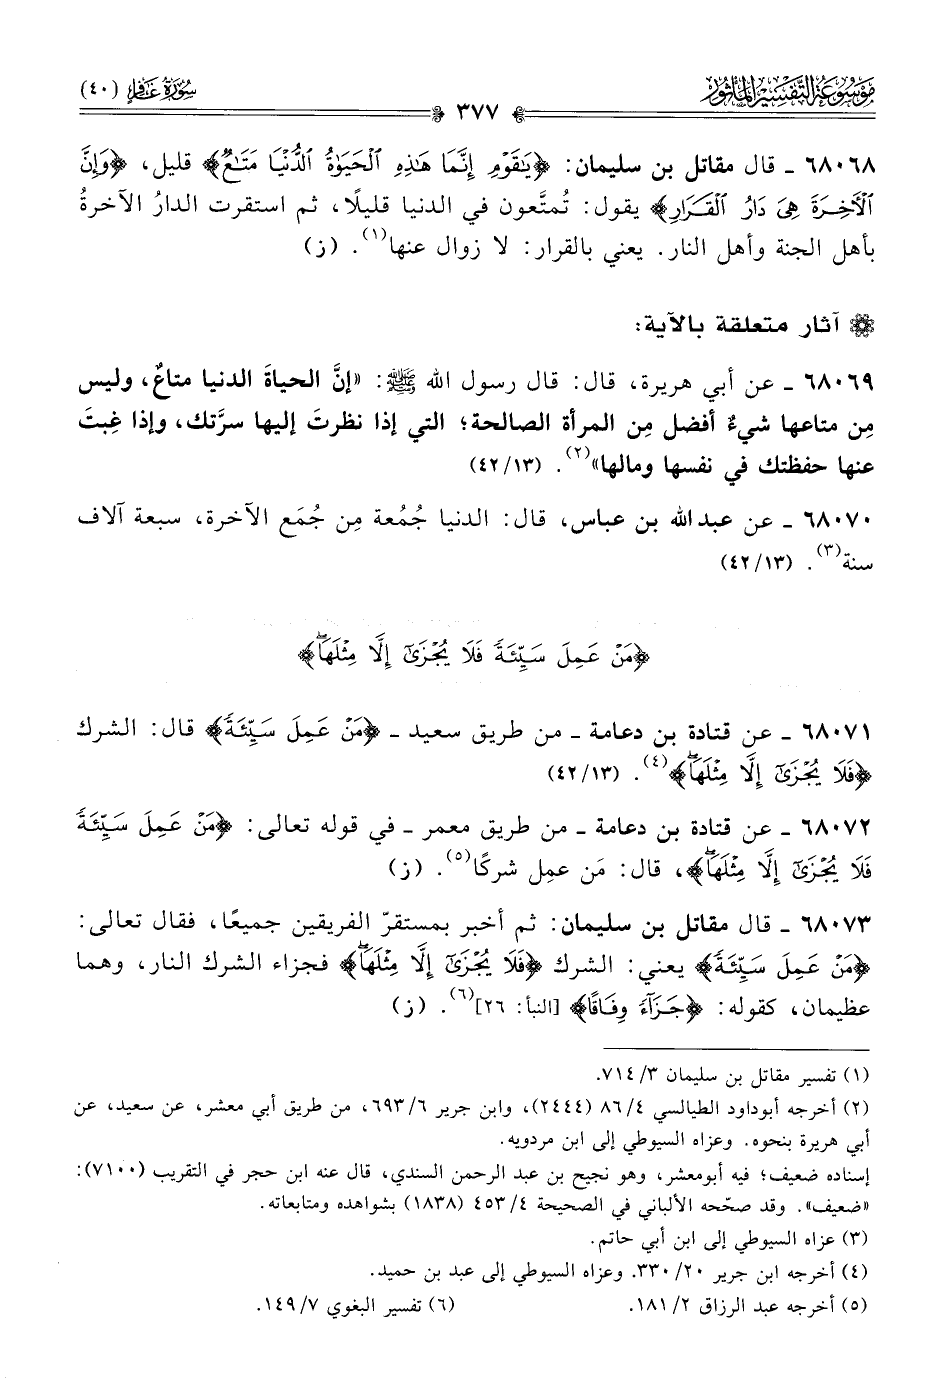 موسوعة التفسير المأثور
سورة غافر (٤٠)
٣٧٧
٦٨٠٦٨ ـ قال مقاتل بن سليمان: ﴿يَٰقَوْمِ إِنَّمَا هَٰذِهِ ٱلْحَيَوٰةُ ٱلدُّنْيَا مَتَٰعٌ﴾ قليل، ﴿وَإِنَّ
ٱلْأَخِرَةَ هِىَ دَارُ ٱلْقَرَارِ﴾ يقول: تُمتَّعون في الدنيا قليلًا، ثم استقرت الدارُ الآخرةُ
بأهل الجنة وأهل النار. يعني بالقرار: لا زوال عنها(١). (ز)
آثار متعلقة بالآية:
٦٨٠٦٩ ـ عن أبي هريرة، قال: قال رسول الله ﷺ: «إنَّ الحياةَ الدنيا متاعٌ، وليس
مِن متاعها شيءٌ أفضل مِن المرأة الصالحة؛ التي إذا نظرتَ إليها سرَّتك، وإذا غِبتَ
عنها حفظتك في نفسها ومالها»(٢). (٤٢/١٣)
٦٨٠٧٠ ـ عن عبد الله بن عباس، قال: الدنيا جُمُعة مِن جُمَع الآخرة، سبعة آلاف
سنة(٣). (٤٢/١٣)
﴿مَنْ عَمِلَ سَيِّئَةً فَلَا يُجْزَىٰٓ إِلَّا مِثْلَهَاۖ﴾
٦٨٠٧١ ـ عن قتادة بن دعامة ـ من طريق سعيد ـ ﴿مَنْ عَمِلَ سَيِّئَةً﴾ قال: الشرك
﴿فَلَا يُجْزَىٰٓ إِلَّا مِثْلَهَاۖ﴾(٤). (٤٢/١٣)
٦٨٠٧٢ ـ عن قتادة بن دعامة ـ من طريق معمر ـ في قوله تعالى: ﴿مَنْ عَمِلَ سَيِّئَةً
فَلَا يُجْزَىٰٓ إِلَّا مِثْلَهَاۖ﴾، قال: مَن عمِل شركًا(٥). (ز)
٦٨٠٧٣ ـ قال مقاتل بن سليمان: ثم أخبر بمستقرّ الفريقين جميعًا، فقال تعالى:
﴿مَنْ عَمِلَ سَيِّئَةً﴾ يعني: الشرك ﴿فَلَا يُجْزَىٰٓ إِلَّا مِثْلَهَاۖ﴾ فجزاء الشرك النار، وهما
عظيمان، كقوله: ﴿جَزَآءً وِفَاقًا﴾ [النبأ: ٢٦](٦). (ز)
(١) تفسير مقاتل بن سليمان ٣/ ٧١٤.
(٢) أخرجه أبوداود الطيالسي ٤/ ٨٦ (٢٤٤٤)، وابن جرير ٦/ ٦٩٣، من طريق أبي معشر، عن سعيد، عن
أبي هريرة بنحوه. وعزاه السيوطي إلى ابن مردويه.
إسناده ضعيف؛ فيه أبومعشر، وهو نجيح بن عبد الرحمن السندي، قال عنه ابن حجر في التقريب (٧١٠٠):
«ضعيف». وقد صحّحه الألباني في الصحيحة ٤/ ٤٥٣ (١٨٣٨) بشواهده ومتابعاته.
(٣) عزاه السيوطي إلى ابن أبي حاتم.
(٤) أخرجه ابن جرير ٢٠/ ٣٣٠. وعزاه السيوطي إلى عبد بن حميد.
(٥) أخرجه عبد الرزاق ٢/ ١٨١.
(٦) تفسير البغوي ٧/ ١٤٩.